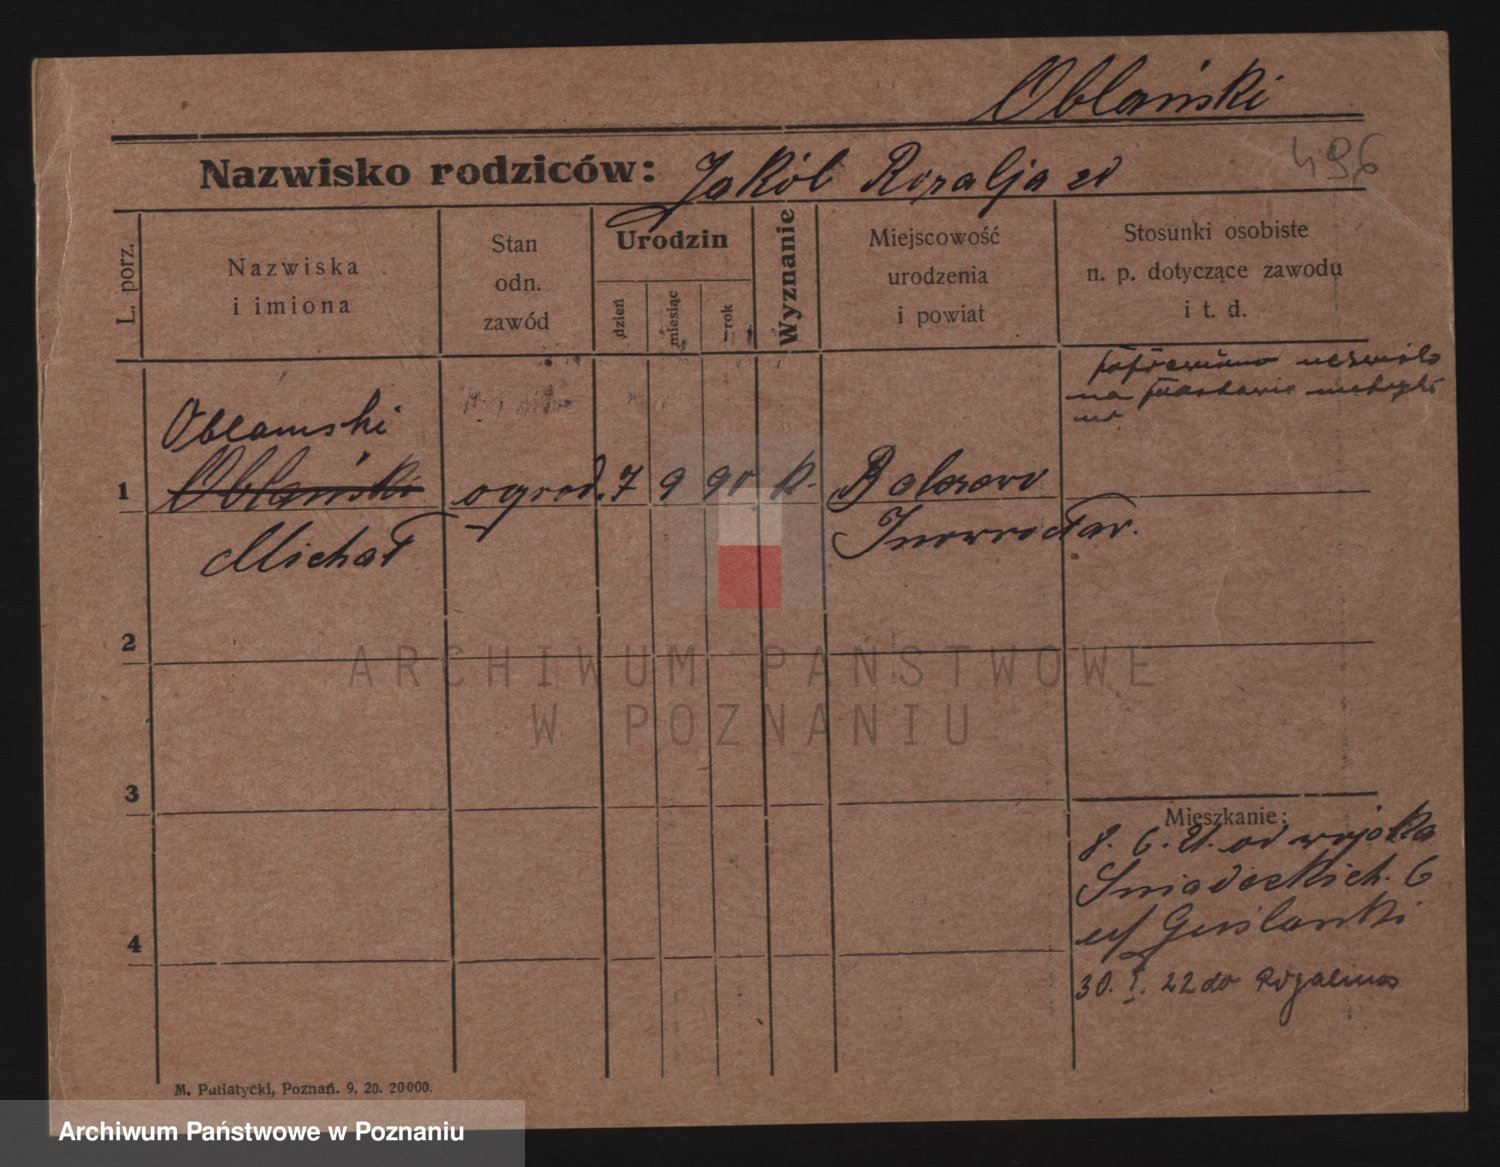 Oblański
496
Nazwisko rodziców: Jakób Rozalja zd
L. porz.
Nazwiska
i imiona
Stan
odn.
zawód
Urodzin
dzień
miesiąc
rok
Wyznanie
Miejscowość
urodzenia
i powiat
Stosunki osobiste
n. p. dotyczące zawodu
i t. d.
poprawiono nazwisko
na podstawie metryki
Oblamski
1 Oblański ogrod. 7 9 90 k.
Michał Inowrocław.
2
3
4
Mieszkanie:
8. 6. 21. od wojska
Sniadeckich. 6
30. I. 22 do Rogalinas
M. Putiatycki, Poznań. 9. 20. 20000.
ARCHIWUM PAŃSTWOWE
W POZNANIU
Archiwum Państwowe w Poznaniu